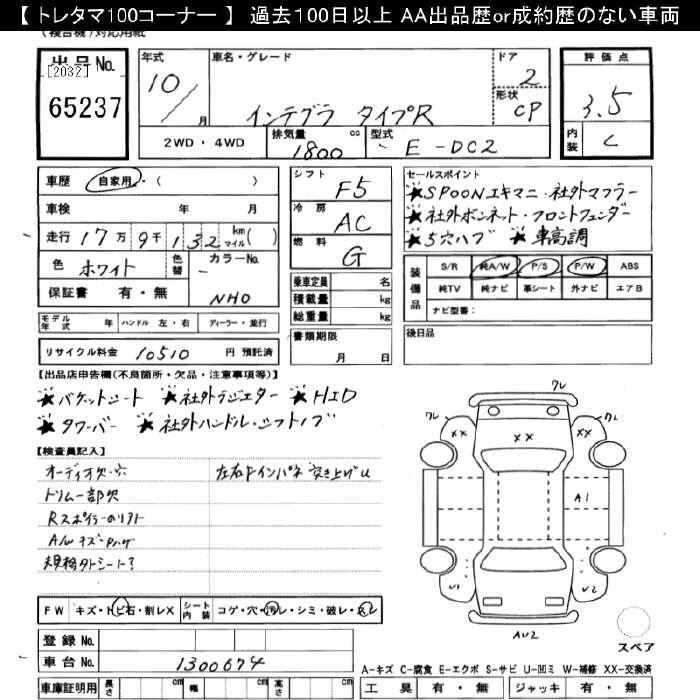 【 トレタマ100コーナー 】 過去100日以上 AA出品歴or成約歴のない車両
(複合機)対応用紙
出品No. [2032] 65237
年式 10/ 月
車名・グレード インテグラ タイプR
ドア 2
形状 CP
評価点 3.5
内装 C
2WD・4WD
排気量 1800 cc
型式 E-DC2
車歴 自家用・( )
車検 年 月
走行 17万9千132 km マイル( )
色 ホワイト 色替 カラーNo. NHO
保証書 有・無
シフト F5
冷房 AC
燃料 G
乗車定員 名
積載量 kg
総重量 kg
書類期限 月 日
セールスポイント
★SPOONエキマニ・社外マフラー
★社外ボンネット・フロントフェンダー
★5穴ハブ ★車高調
装備品 S/R 純A/W P/S P/W ABS
純TV 純ナビ 革シート 外ナビ エアB
ナビ型番:
後日品
モデル年式 年 ハンドル 左・右 ディーラー・並行
リサイクル料金 10510 円 預託済
【出品店申告欄(不良箇所・欠品・注意事項等)】
★バケットシート ★社外ラジエター ★HID
★タワーバー ★社外ハンドル・シフトノブ
【検査員記入】
オーディオ欠・穴
左右Fインパネ突き上げU
トリム一部欠
Rスポイラーのリフト
A/Wキズちハゲ
規格外シート?
ワレ
ワレ ワレ
×× ×× ××
A1
U1 U2
AU2
スペア
FW キズ・トビ石・割レX シート内装 コゲ・穴・汚レ・シミ・破レ・スレ
登録No.
車台No. 1300674
車庫証明用 長さ cm 幅 cm 高さ cm
A-キズ C-腐食 E-エクボ S-サビ U-凹ミ W-補修 XX-交換済
工具 有・無 ジャッキ 有・無